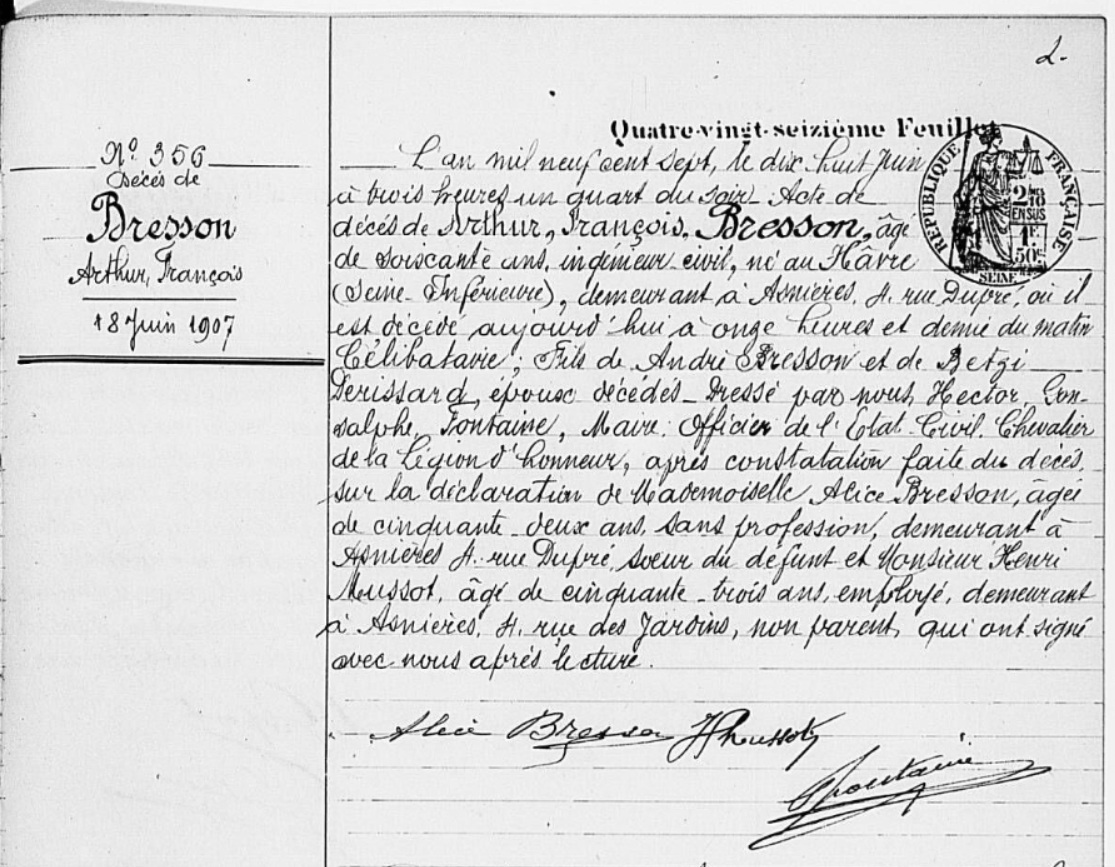 2.
Quatre-vingt-seizième Feuillet
RÉPUBLIQUE FRANÇAISE
2/10 EN SUS
1F 50c
SEINE
N° 356
Décès de
Bresson
Arthur, François
18 Juin 1907
L'an mil neuf cent sept, le dix huit Juin
à trois heures un quart du soir Acte de
décés de Arthur, François, Bresson, âgé
de soixante ans, ingénieur civil, né au Hâvre
(Seine-Inférieure), demeurant à Asnières, 4. rue Dupré, où il
est décédé aujourd'hui à onze heures et demie du matin
Célibataire; Fils de André Bresson et de Betzi
Derissard, époux décédés _ Dressé par nous, Hector, Gon-
salphe, Fontaine, Maire. Officier de l'Etat-Civil. Chevalier
de la Légion d'honneur, après constatation faite du décès,
sur la déclaration de Mademoiselle Alice Bresson, âgée
de cinquante-deux ans, sans profession, demeurant à
Asnières 4. rue Dupré, soeur du défunt et Monsieur Henri
Mussot, âgé de cinquante-trois ans, employé, demeurant
à Asnières, 4. rue des Jardins, non parent, qui ont signé
avec nous après lecture.
Alice Bresson HMussot
Fontaine